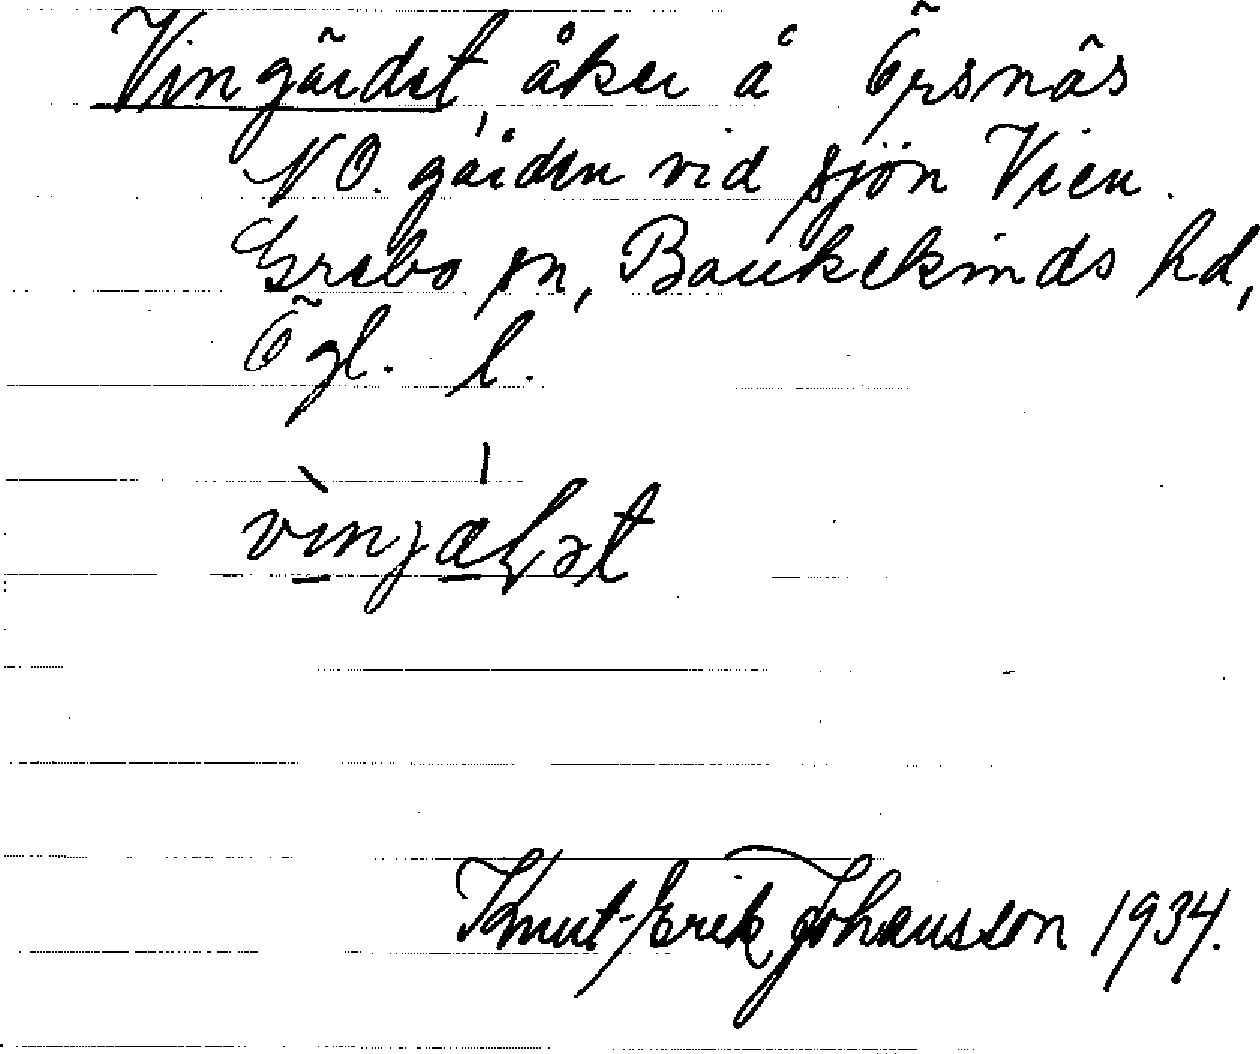 Vingärdet, åker å Örsnäs
NO. gården vid sjön Vien.
Grebo sn, Bankekinds hd,
Ögl. l.
Knut-Erik Johansson 1934.